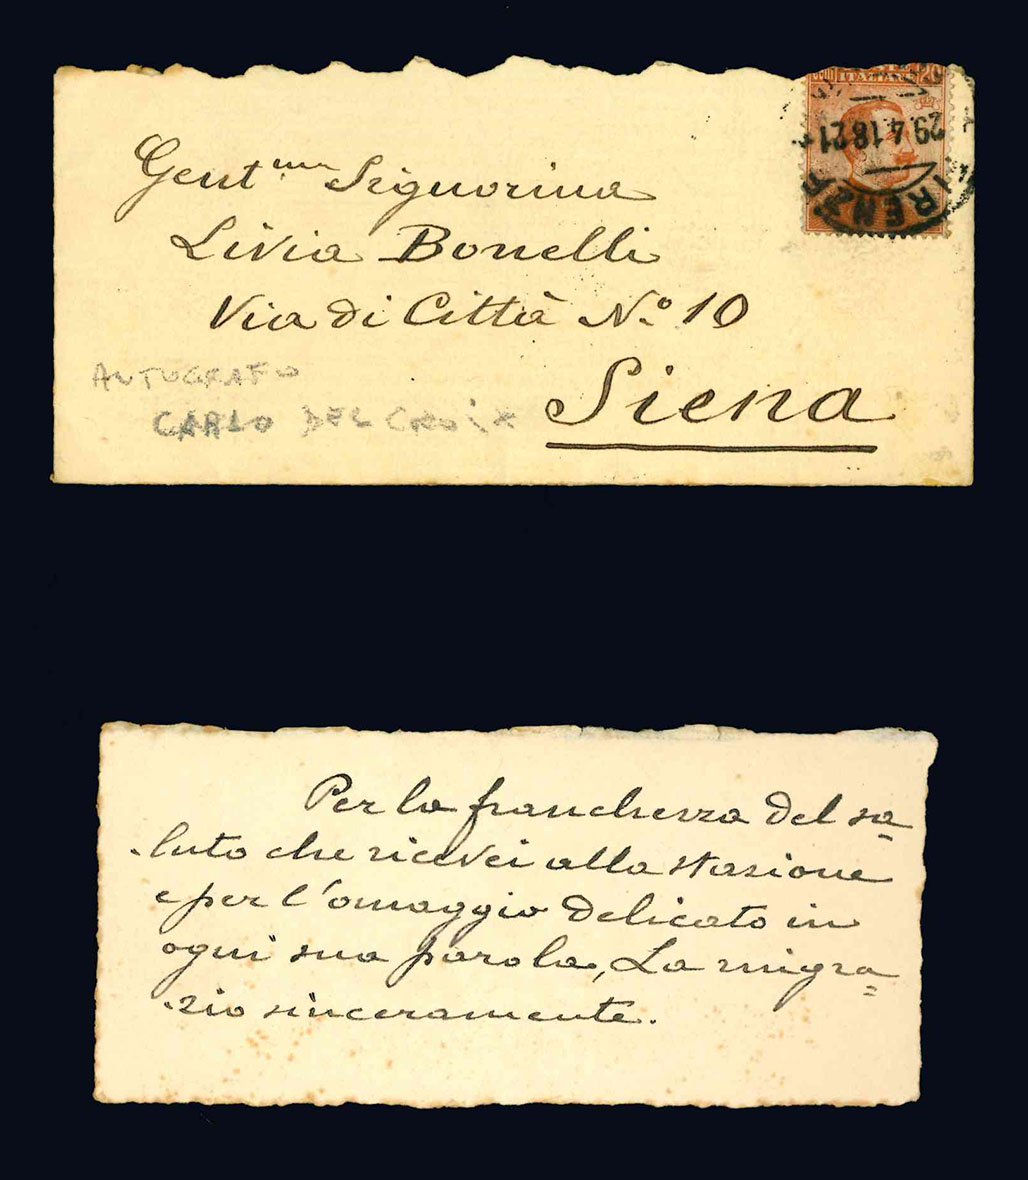 Gent.ma Signorina
Livia Bonelli
Via di Città No. 10
Siena
AUTOGRAFO
CARLO DEL CROIX
ITALIANE
29.4.18 21
FIRENZE
Per la franchezza del sa=
luto che ricevei alla stazione
e per l'omaggio delicato in
ogni sua parola, La migra=
zio sinceramente.